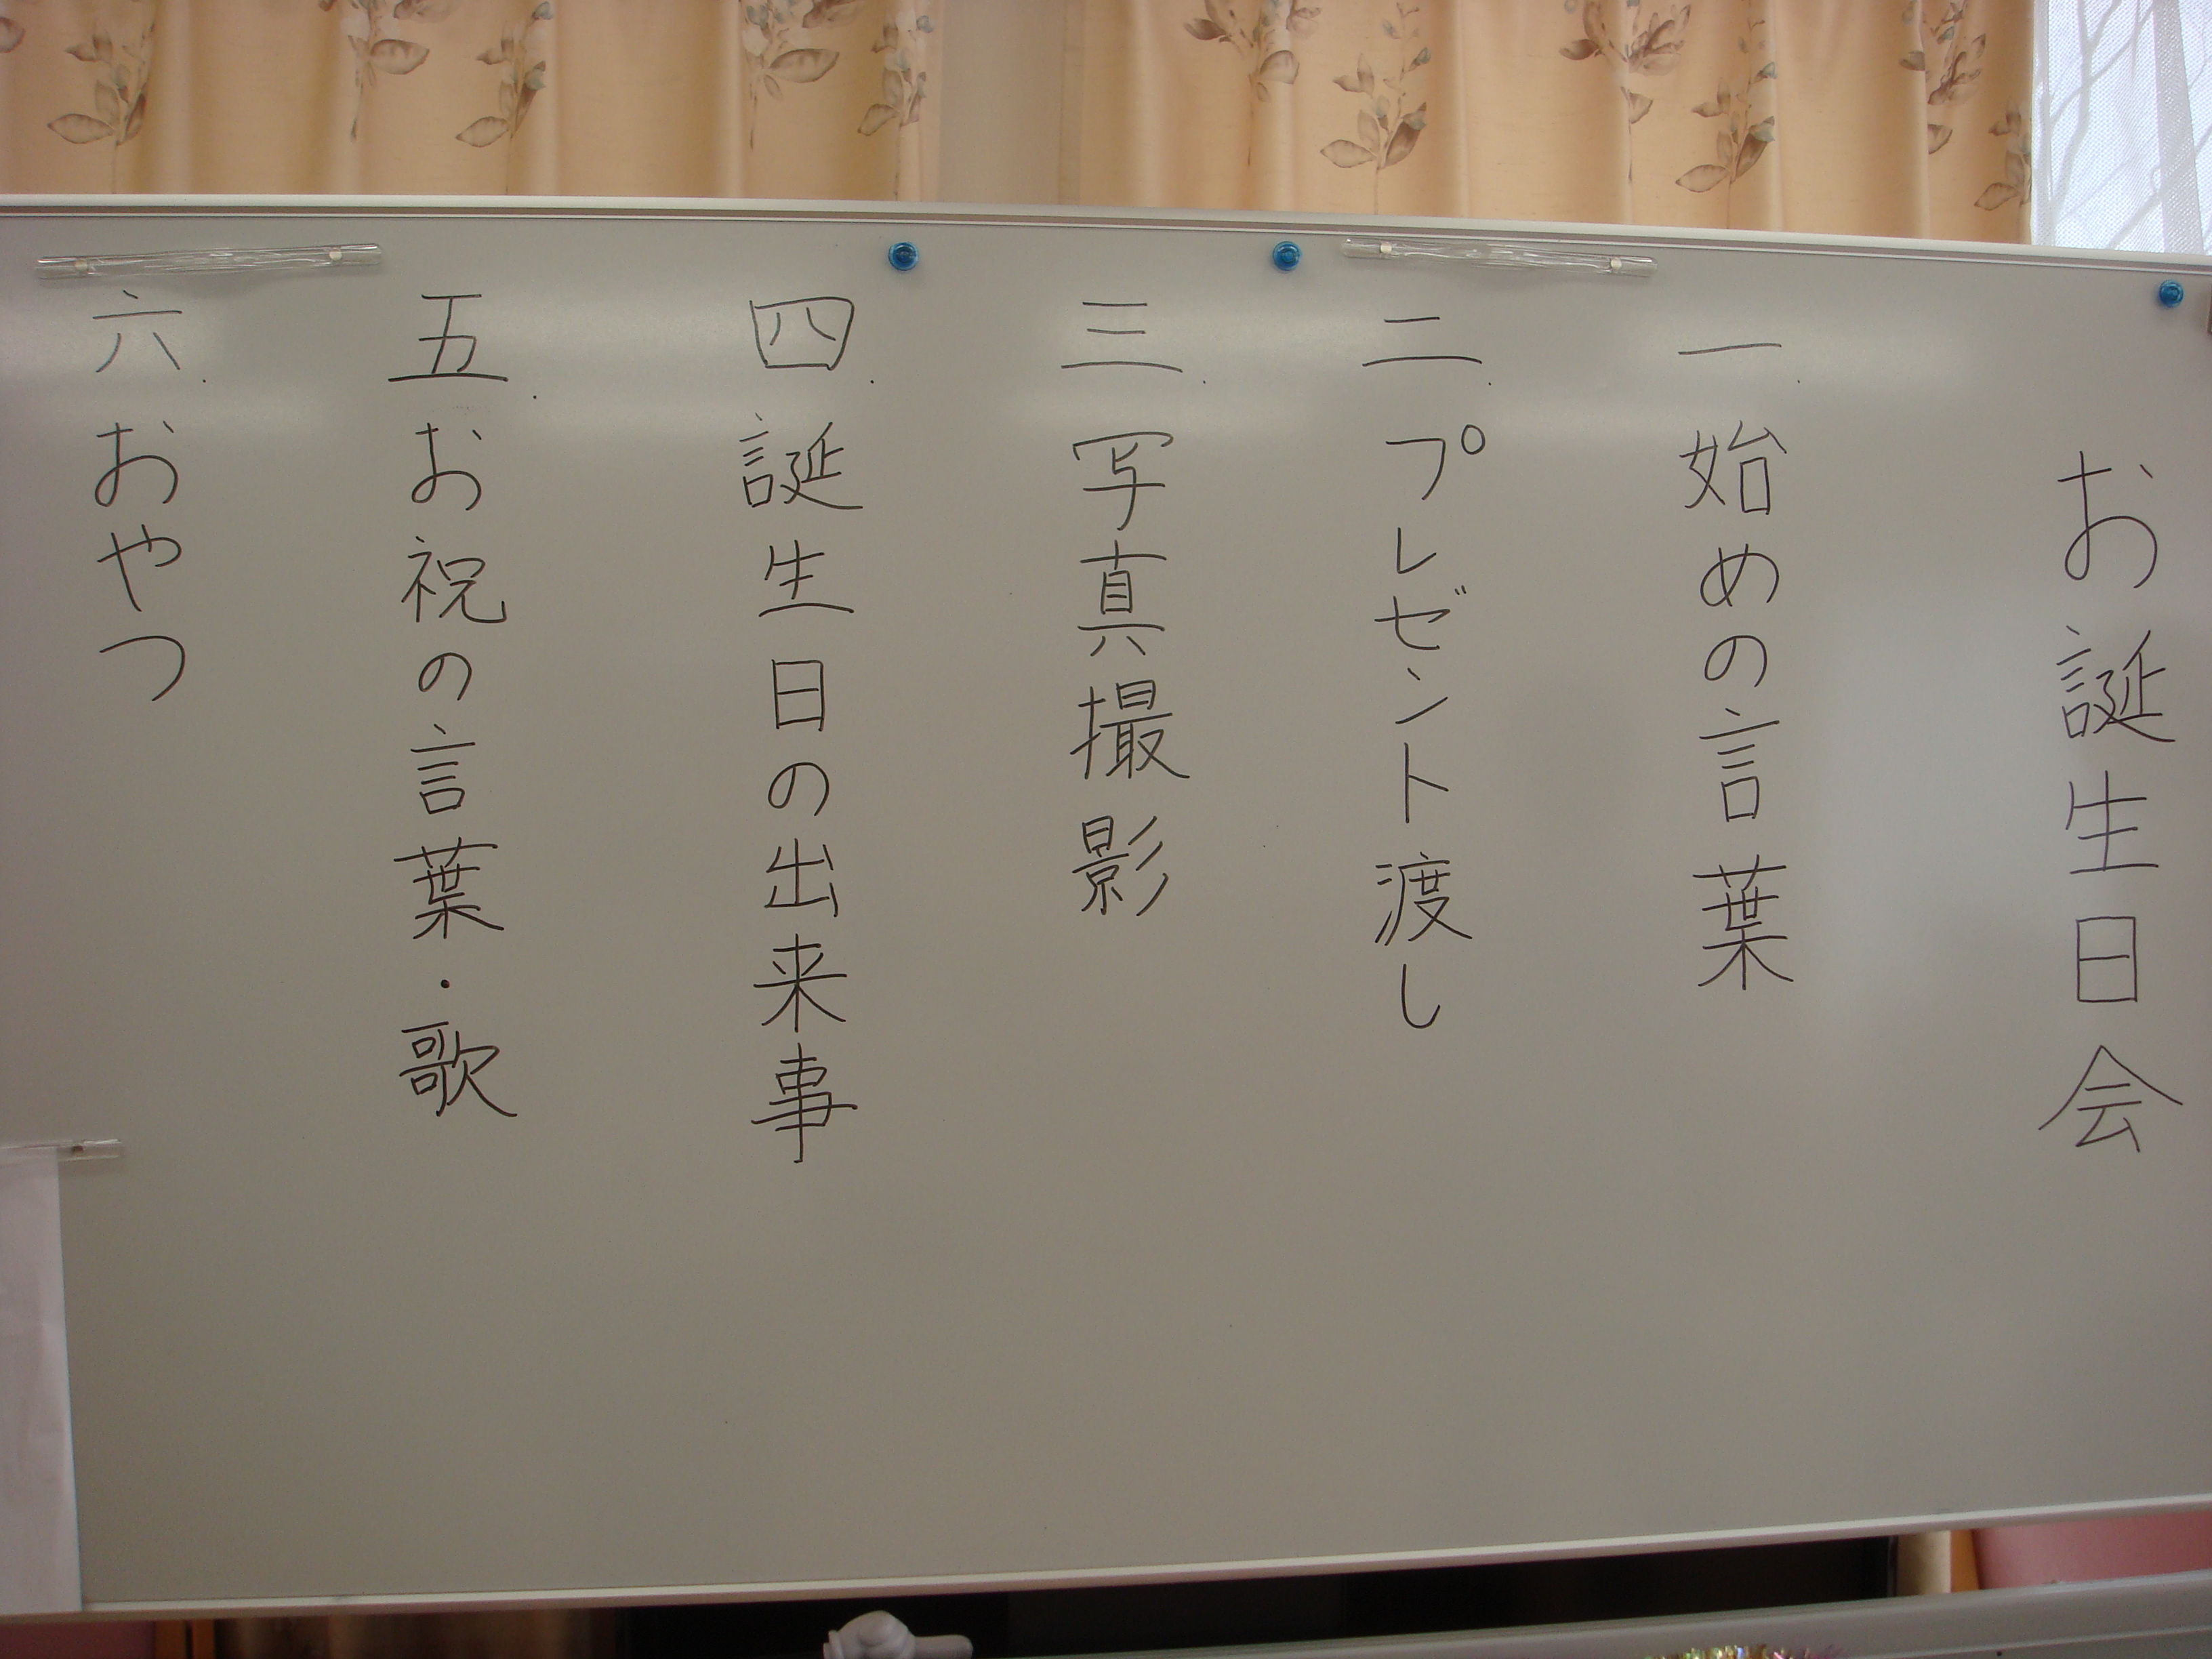 お誕生日会
一.始めの言葉
二.プレゼント渡し
三.写真撮影
四.誕生日の出来事
五.お祝の言葉・歌
六.おやつ